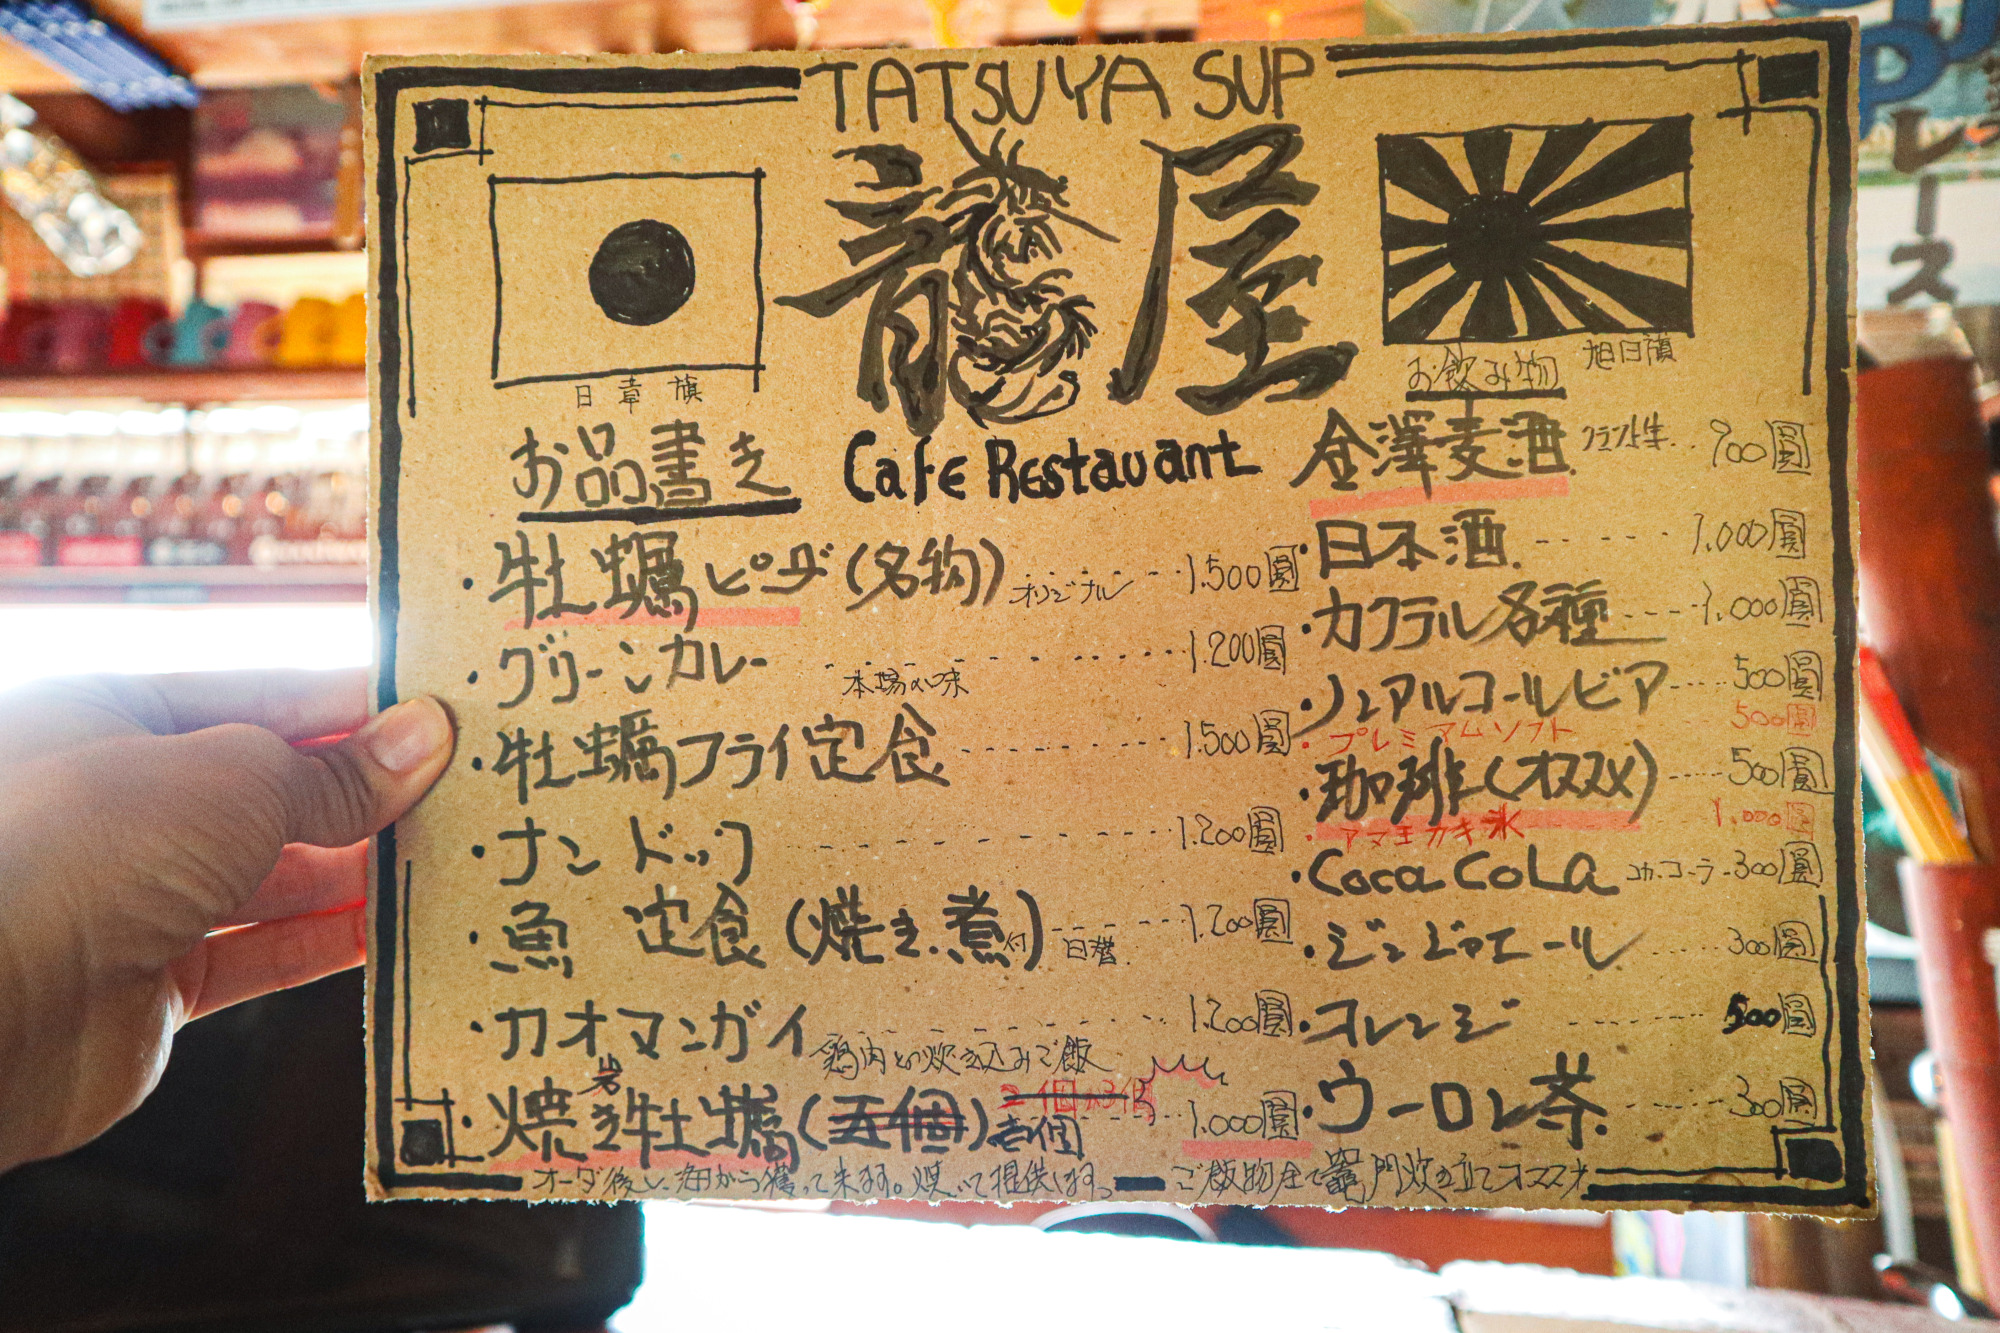 TATSUYA SUP
龍屋
日章旗
旭日旗
お品書き
Cafe Restaurant
・牡蠣ピザ(名物) オリジナル 1.500圓
・グリーンカレー 本場の味 1.200圓
・牡蠣フライ定食 1.500圓
・ナンドッグ 1.200圓
・魚 定食(焼き.煮付) 日替. 1.200圓
・カオマンガイ 鶏肉との炊き込みご飯 1.200圓
・焼き岩牡蠣(五個) 2個か3個 壱個 1.000圓
オーダ後し、海から獲って来ます。焼いて提供します。
お飲み物
金澤麦酒 クラフト生 700圓
・日本酒 1.000圓
・カクテル各種 1.000圓
・ノンアルコールビア 500圓
・プレミアムソフト 500圓
・珈琲(オススメ) 500圓
・アマ王カキ氷 1.000圓
・Coca CoLa コカ・コーラ 300圓
・ジンジャエール 300圓
・オレンジ 500圓
・ウーロン茶 300圓
レース